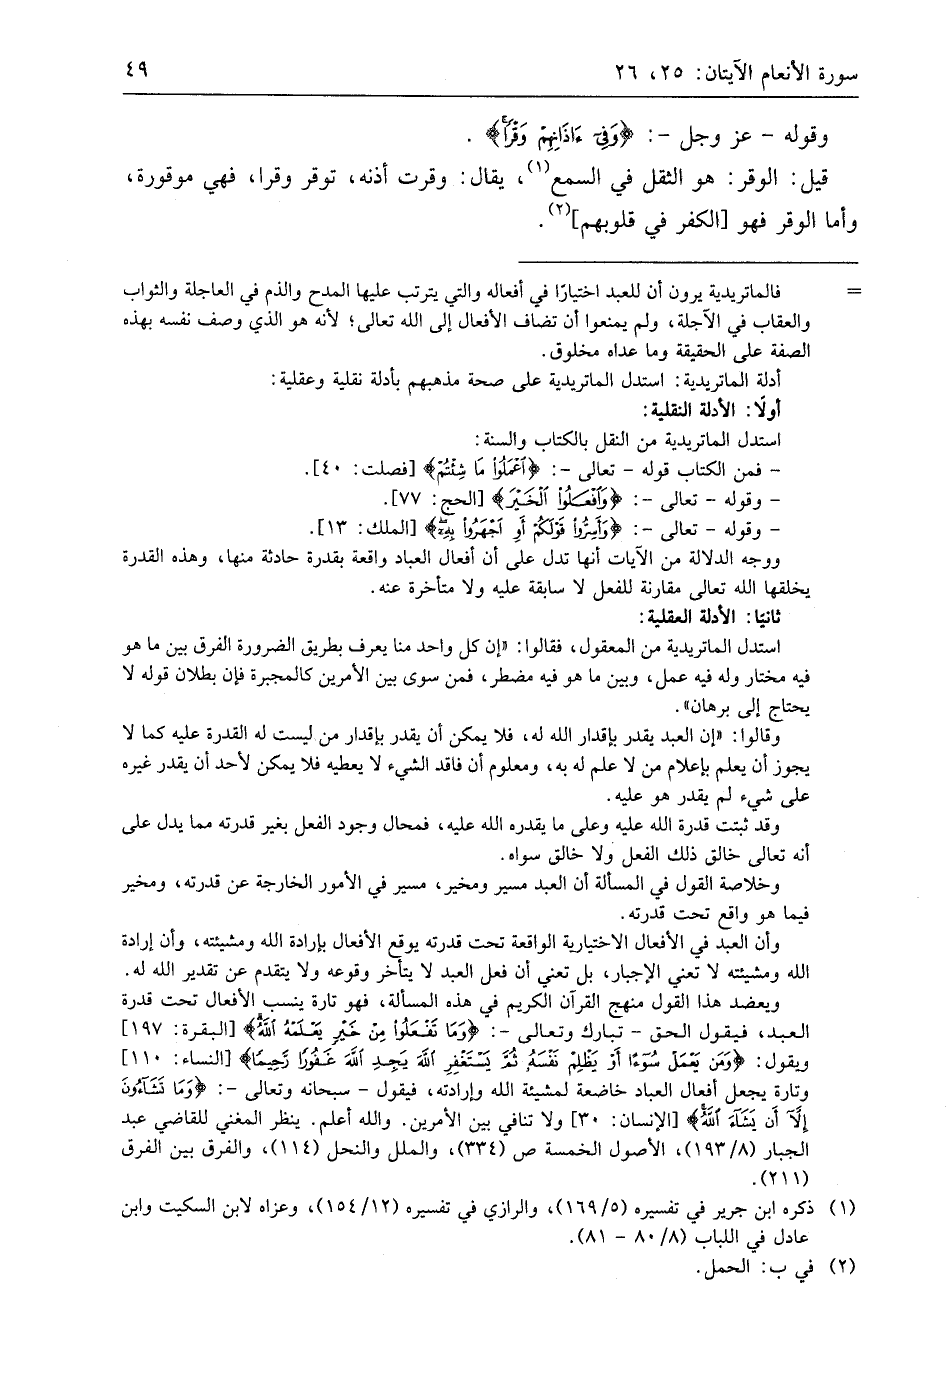 سورة الأنعام الآيتان: ٢٥، ٢٦
٤٩
وقوله - عز وجل -: ﴿وَفِىٓ ءَاذَانِهِمْ وَقْرًاۚ﴾ .
قيل: الوقر: هو الثقل في السمع(١)، يقال: وقرت أذنه، توقر وقرا، فهي موقورة،
وأما الوقر فهو [الكفر في قلوبهم](٢).
= فالماتريدية يرون أن للعبد اختيارًا في أفعاله والتي يترتب عليها المدح والذم في العاجلة والثواب
والعقاب في الآجلة، ولم يمنعوا أن تضاف الأفعال إلى الله تعالى؛ لأنه هو الذي وصف نفسه بهذه
الصفة على الحقيقة وما عداه مخلوق.
أدلة الماتريدية: استدل الماتريدية على صحة مذهبهم بأدلة نقلية وعقلية:
أولًا: الأدلة النقلية:
استدل الماتريدية من النقل بالكتاب والسنة:
- فمن الكتاب قوله - تعالى -: ﴿ٱعْمَلُوا۟ مَا شِئْتُمْ﴾ [فصلت: ٤٠].
- وقوله - تعالى -: ﴿وَٱفْعَلُوا۟ ٱلْخَيْرَ﴾ [الحج: ٧٧].
- وقوله - تعالى -: ﴿وَأَسِرُّوا۟ قَوْلَكُمْ أَوِ ٱجْهَرُوا۟ بِهِۦٓ﴾ [الملك: ١٣].
ووجه الدلالة من الآيات أنها تدل على أن أفعال العباد واقعة بقدرة حادثة منها، وهذه القدرة
يخلقها الله تعالى مقارنة للفعل لا سابقة عليه ولا متأخرة عنه.
ثانيًا: الأدلة العقلية:
استدل الماتريدية من المعقول، فقالوا: «إن كل واحد منا يعرف بطريق الضرورة الفرق بين ما هو
فيه مختار وله فيه عمل، وبين ما هو فيه مضطر، فمن سوى بين الأمرين كالمجبرة فإن بطلان قوله لا
يحتاج إلى برهان».
وقالوا: «إن العبد يقدر بإقدار الله له، فلا يمكن أن يقدر بإقدار من ليست له القدرة عليه كما لا
يجوز أن يعلم بإعلام من لا علم له به، ومعلوم أن فاقد الشيء لا يعطيه فلا يمكن لأحد أن يقدر غيره
على شيء لم يقدر هو عليه.
وقد ثبتت قدرة الله عليه وعلى ما يقدره الله عليه، فمحال وجود الفعل بغير قدرته مما يدل على
أنه تعالى خالق ذلك الفعل ولا خالق سواه.
وخلاصة القول في المسألة أن العبد مسير ومخير، مسير في الأمور الخارجة عن قدرته، ومخير
فيما هو واقع تحت قدرته.
وأن العبد في الأفعال الاختيارية الواقعة تحت قدرته يوقع الأفعال بإرادة الله ومشيئته، وأن إرادة
الله ومشيئته لا تعني الإجبار، بل تعني أن فعل العبد لا يتأخر وقوعه ولا يتقدم عن تقدير الله له.
ويعضد هذا القول منهج القرآن الكريم في هذه المسألة، فهو تارة ينسب الأفعال تحت قدرة
العبد، فيقول الحق - تبارك وتعالى -: ﴿وَمَا تَفْعَلُوا۟ مِنْ خَيْرٍ يَعْلَمْهُ ٱللَّهُۗ﴾ [البقرة: ١٩٧]
ويقول: ﴿وَمَن يَعْمَلْ سُوٓءًا أَوْ يَظْلِمْ نَفْسَهُۥ ثُمَّ يَسْتَغْفِرِ ٱللَّهَ يَجِدِ ٱللَّهَ غَفُورًا رَّحِيمًا﴾ [النساء: ١١٠]
وتارة يجعل أفعال العباد خاضعة لمشيئة الله وإرادته، فيقول - سبحانه وتعالى -: ﴿وَمَا تَشَآءُونَ
إِلَّآ أَن يَشَآءَ ٱللَّهُ﴾ [الإنسان: ٣٠] ولا تنافي بين الأمرين. والله أعلم. ينظر المغني للقاضي عبد
الجبار (٨/ ١٩٣)، الأصول الخمسة ص (٣٣٤)، والملل والنحل (١١٤)، والفرق بين الفرق
(٢١١).
(١) ذكره ابن جرير في تفسيره (٥/ ١٦٩)، والرازي في تفسيره (١٢/ ١٥٤)، وعزاه لابن السكيت وابن
عادل في اللباب (٨/ ٨٠ - ٨١).
(٢) في ب: الحمل.